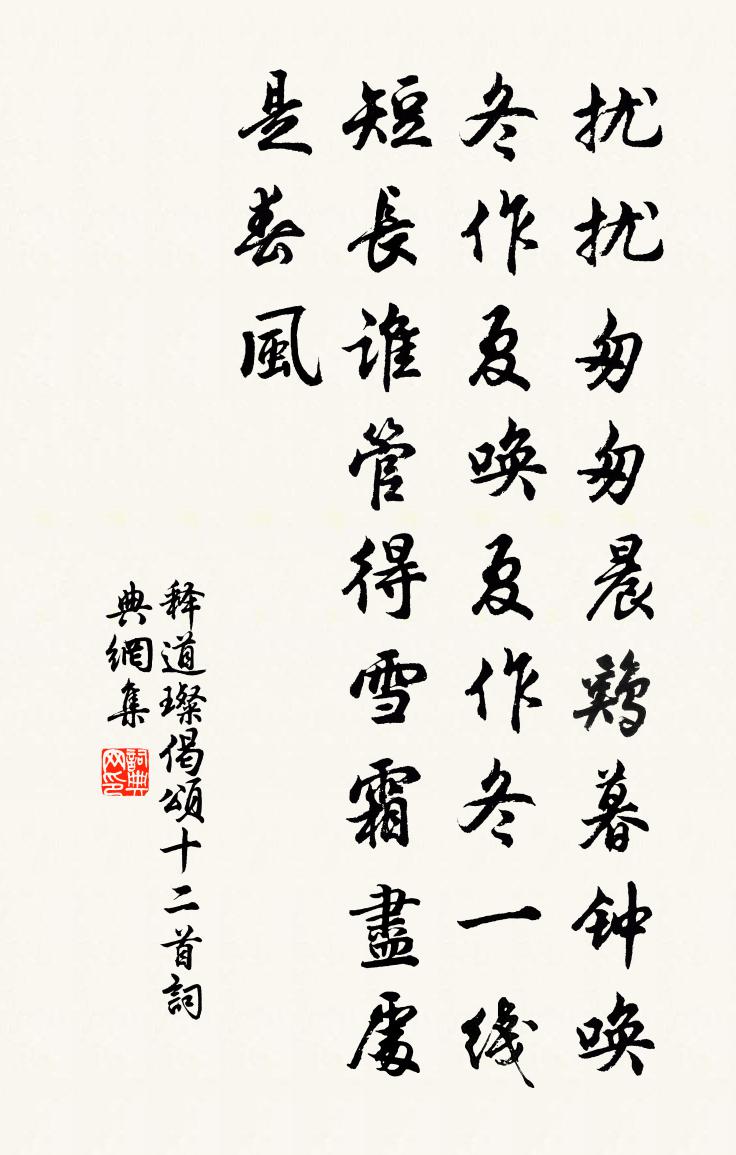 扰扰匆匆晨鷄暮钟唤
冬作夏唤夏作冬一线
短長谁管得雪霜盡處
是春風
释道璨偈頌十二首詞
典網集
詞典网印